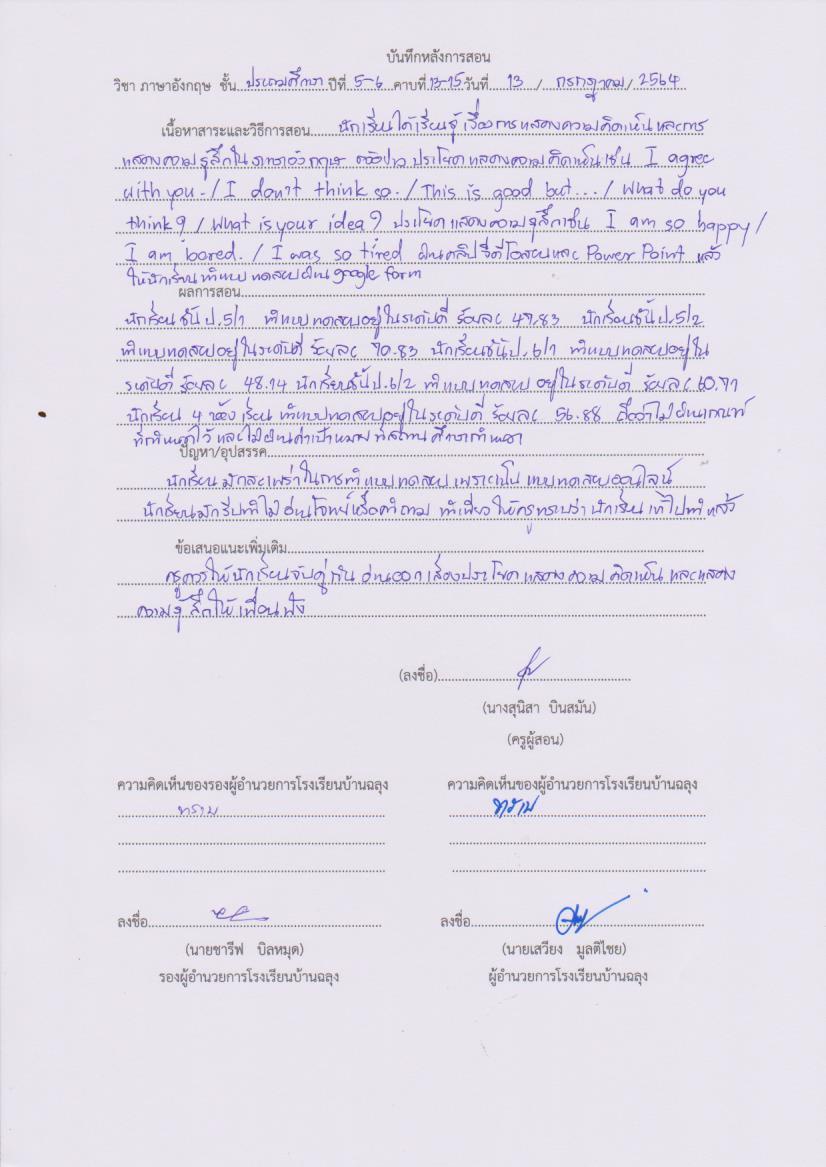 บันทึกหลังการสอน
วิชา ภาษาอังกฤษ ชั้น ประถมศึกษา ปีที่ 5-6 คาบที่ 13-15 วันที่ 13 / กรกฎาคม / 2564
เนื้อหาสาระและวิธีการสอน นักเรียนได้เรียนรู้ เรื่องการแสดงความคิดเห็นและการ
แสดงความรู้สึกในภาษาอังกฤษ ตัวอย่าง ประโยคแสดงความคิดเห็น เช่น I agree
with you. / I don't think so. / This is good but... / What do you
think? / What is your idea? ประโยคแสดงความรู้สึก เช่น I am so happy /
I am bored. / I was so tired ผ่านคลิปวีดีโอ และ Power Point แล้ว
ให้นักเรียนทำแบบทดสอบผ่าน google form
ผลการสอน
นักเรียนชั้น ป.5/1 ทำแบบทดสอบอยู่ในระดับดี ร้อยละ 47.83 นักเรียนชั้น ป.5/2
ทำแบบทดสอบอยู่ในระดับดี ร้อยละ 70.83 นักเรียนชั้น ป.6/1 ทำแบบทดสอบอยู่ใน
ระดับดี ร้อยละ 48.14 นักเรียนชั้น ป.6/2 ทำแบบทดสอบ อยู่ในระดับดี ร้อยละ 60.71
นักเรียน 4 ห้องเรียน ทำแบบทดสอบอยู่ในระดับดี ร้อยละ 56.88 ถือว่าไม่ผ่านเกณฑ์
ที่กำหนดไว้ และไม่ผ่านค่าเป้าหมายที่สถานศึกษากำหนด
ปัญหา/อุปสรรค
นักเรียนมักสะเพร่าในการทำแบบทดสอบ เพราะเป็น แบบทดสอบออนไลน์
นักเรียนมักรีบทำไม่อ่านโจทย์หรือคำถาม ทำเพียงให้ครูทราบว่า นักเรียน เข้าไปทำแล้ว
ข้อเสนอแนะเพิ่มเติม
ครูควรให้นักเรียนจับคู่กัน อ่านออกเสียงประโยค แสดงความคิดเห็น และแสดง
ความรู้สึกให้เพื่อนฟัง
(ลงชื่อ)
(นางสุนิสา บินสมัน)
(ครูผู้สอน)
ความคิดเห็นของรองผู้อำนวยการโรงเรียนบ้านฉลุง
ทราบ
ลงชื่อ
(นายชารีฟ บิลหมุด)
รองผู้อำนวยการโรงเรียนบ้านฉลุง
ความคิดเห็นของผู้อำนวยการโรงเรียนบ้านฉลุง
ทราบ
ลงชื่อ
(นายเสวียง มูลติไชย)
ผู้อำนวยการโรงเรียนบ้านฉลุง